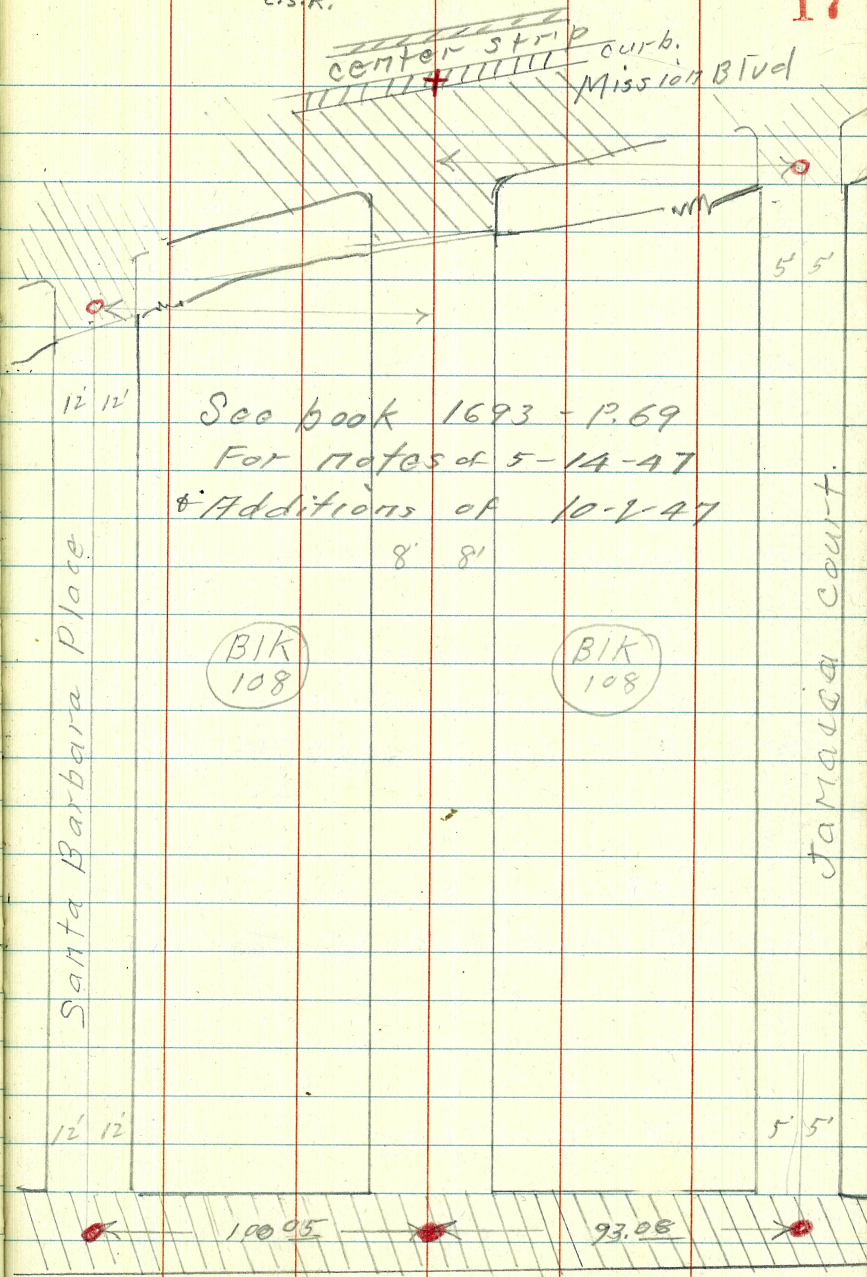 17
center strip
curb.
Mission Blvd
5' 5'
12' 12'
See book 1693 - P.69
For notes of 5-14-47
& Additions of 10-2-47
8' 8'
Santa Barbara Place
Blk
108
Blk
108
Jamaica Court.
12' 12'
5' 5'
100 05
93.08